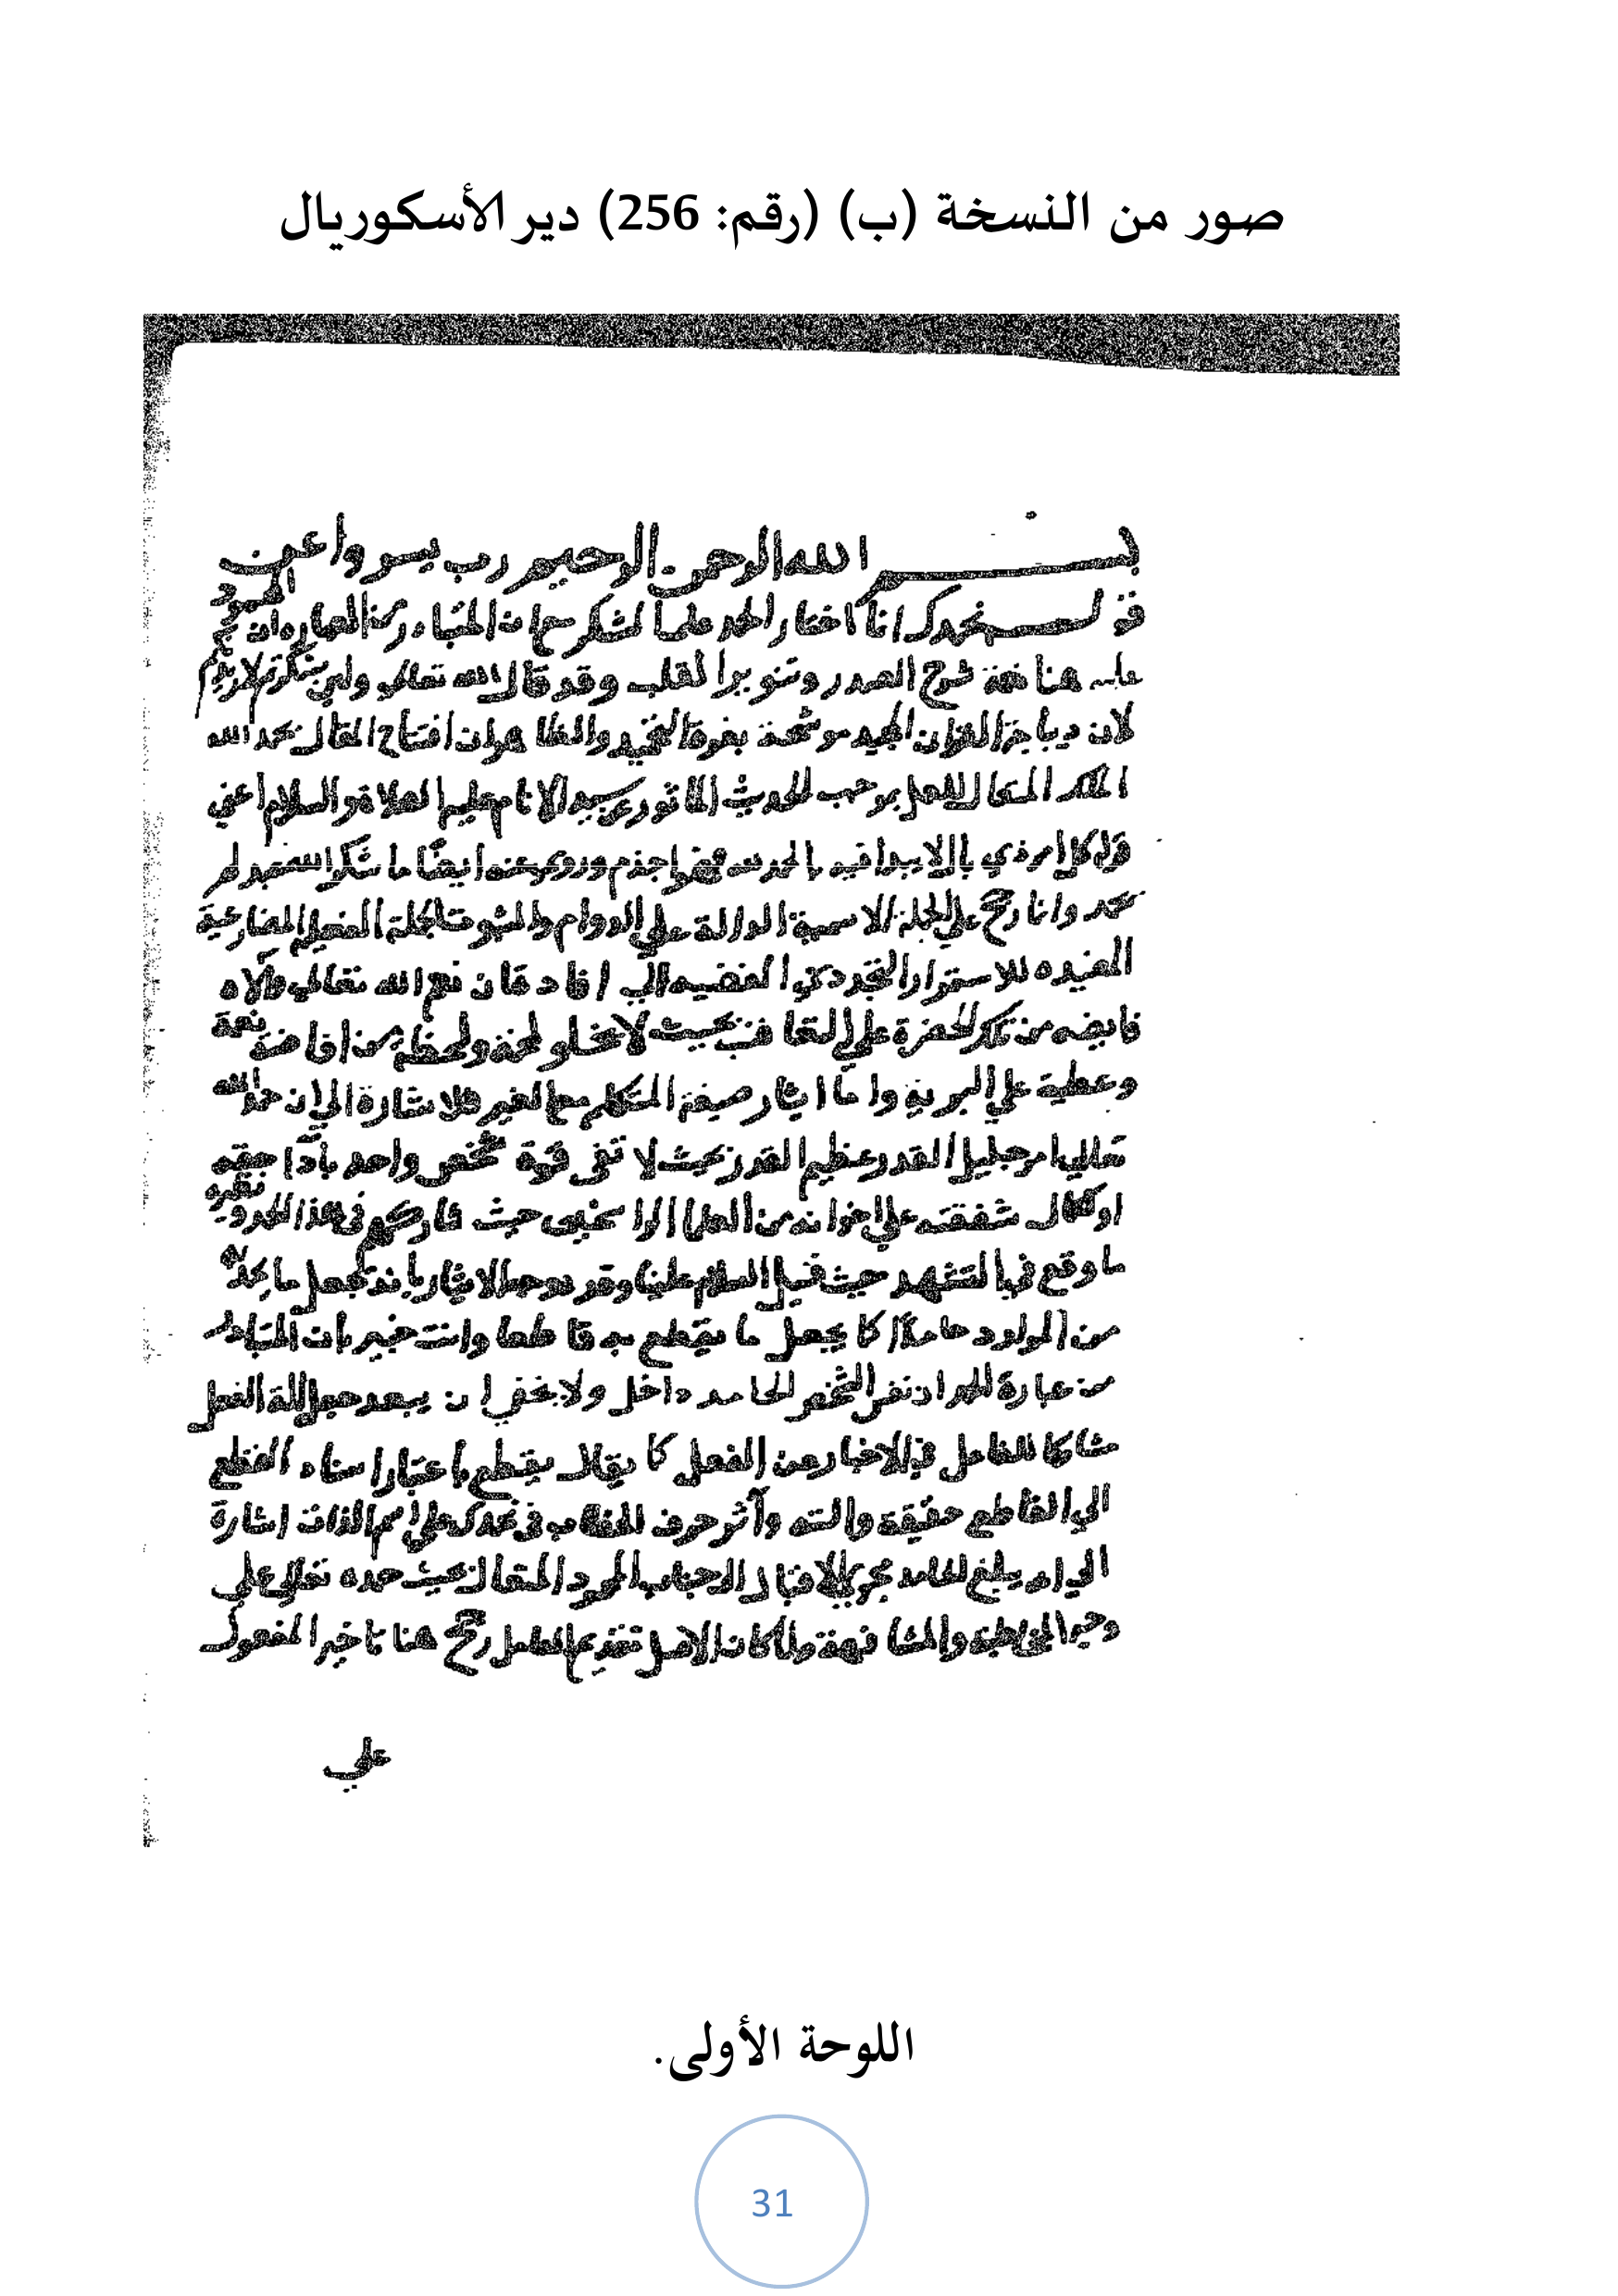 صور من النسخة (ب) (رقم: 256) دير الأسكوريال
بسم الله الرحمن الرحيم رب يسر واعن
قوله نحمدك انا اختار الحمد على الشكر
هنا شرح الصدر وتنويرا لقلب وقد قال الله تعالى ولئن شكرتم لازيدنكم
لان ديباجة القران المجيد موشحة بغرة التحميد والظاهر ان افتتاح المقال بحمد الله
الملك المتعال للعمل بموجب الحديث الماثور عن سيد الانام عليه الصلاة والسلام اعني
قوله كل امر ذي بال لا يبدا فيه بالحمد لله فهو اجذم وروي عنه ايضا ما شكر الله عبد لم
يحمده وانما رجح على الجملة الاسمية الدالة على الدوام والثبوت الجملة الفعلية المضارعية
المفيده للاستمرار التجددي القضيه الى افاد فان نعم الله تعالى والاه
فايضه من تلك الحضرة على التعاقب بحيث لا تخلو لمحة ولحظة من افاضة نعمة
وعطية على البرية واما ايثار صيغة المتكلم مع الغير فللاشارة الى ان حمد الله
تعالى امر جليل القدر عظيم القدر بحيث لا تفي قوة شخص واحد بأدا حقه
او لكمال شفقته على اخوانه من العلما الراسخين حيث شاركهم في هذا الحمد ونظيره
ما وقع في التشهد حيث قيل السلام علينا وقد يوجه الايثار بانه تجعل ما يحمد لاجله
من الموارد حامدا كما يجعل ما يقطع به قاطعا وانت خبير بان المتبادر
من عبارة الحمد ان نفس الشخص الحامد داخل ولا يخفى ان يبعد جعل الة الفعل
مشاركا للفاعل في الاخبار عن الفعل كما يقال يقطع باعتبار اسناد القطع
الى القاطع حقيقة والته وآثر حرف الخطاب في نحمدك على اسم الذات اشارة
الى انه يبلغ الحامد مجرى الاقبال الى جناب المحمود المتعال بحيث حمده تعالى على
وجه المخاطبة والمشافهة ولما كان الاصل تقديم العامل رجح هنا تاخير المفعول
على
اللوحة الأولى.
31